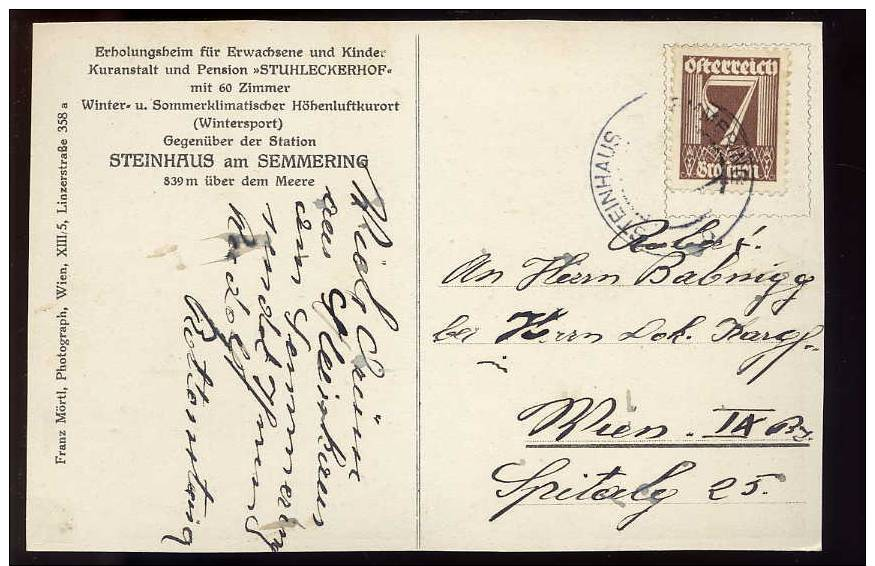 Erholungsheim für Erwachsene und Kinder
Kuranstalt und Pension »STUHLECKERHOF«
mit 60 Zimmer
Winter- u. Sommerklimatischer Höhenluftkurort
(Wintersport)
Gegenüber der Station
STEINHAUS am SEMMERING
839 m über dem Meere
Franz Mörtl, Photograph, Wien, XIII/5, Linzerstraße 358 a
Viele Grüße
aus Steinhaus
am Semmering
sendet Ihnen
Rudolf
Österreich
7
Groschen
STEINHAUS
An Herrn Babnigg
bei Herrn Dok.
Wien. IX Bz.
Spitalg 25.